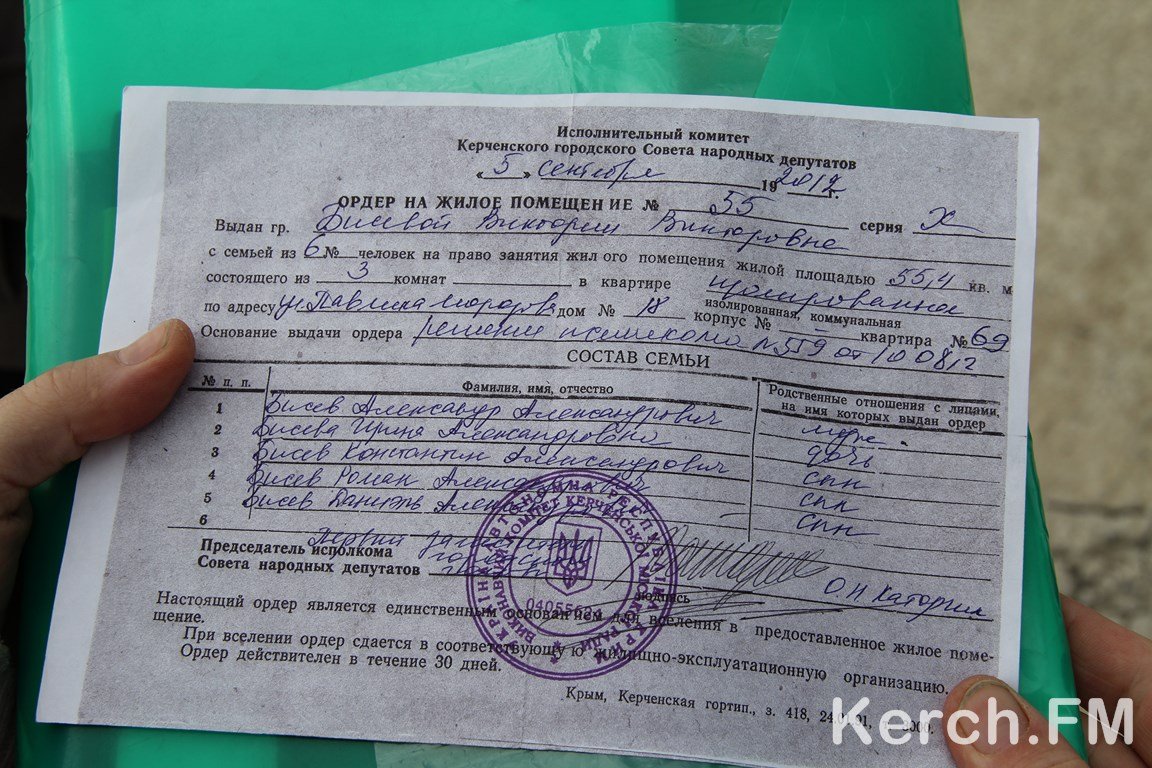 Исполнительный комитет
Керченского городского Совета народных депутатов
« 5 » сентября 19 2012 г.
ОРДЕР НА ЖИЛОЕ ПОМЕЩЕНИЕ № 55 серия X
Выдан гр. Бисевой Виктории Викторовне
с семьей из 6 № человек на право занятия жилого помещения жилой площадью 55,4 кв. м
состоящего из 3 комнат в квартире изолированное
изолированная, коммунальная
по адресу ул Павлика Морозова дом № 18 корпус № – квартира № 69
Основание выдачи ордера решение исполкома № 559 от 10 08 12
СОСТАВ СЕМЬИ
№ п. п. Фамилия, имя, отчество Родственные отношения с лицами, на имя которых выдан ордер
1 Бисев Александр Александрович муж.
2 Бисева Ирина Александровна дочь
3 Бисев Константин Александрович сын
4 Бисев Роман сын
5 Бисев Даниэль сын
6
Председатель исполкома Первый
Совета народных депутатов
подпись О Н Каторгин
УКРАЇНА АВТОНОМНА РЕСПУБЛІКА КРИМ
ВИКОНАВЧИЙ КОМІТЕТ КЕРЧЕНСЬКОЇ МІСЬКОЇ РАДИ
Настоящий ордер является единственным основанием для вселения в предоставленное жилое поме-
щение.
При вселении ордер сдается в соответствующую жилищно-эксплуатационную организацию.
Ордер действителен в течение 30 дней.
Крым, Керченская гортип., з. 418, 24.01.01,
Kerch.FM